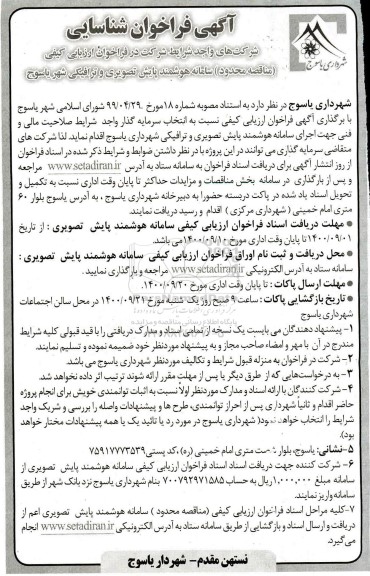 آگهی فراخوان شناسایی
شرکت های واجد شرایط شرکت در فراخوان ارزیابی کیفی
(مناقصه محدود) سامانه هوشمند پایش تصویری و ترافیکی شهر یاسوج
شهرداری یاسوج
شهرداری یاسوج در نظر دارد به استناد مصوبه شماره ۱۸ مورخ ۹۹/۰۴/۲۹ شورای اسلامی شهر یاسوج
با برگذاری آگهی فراخوان ارزیابی کیفی نسبت به انتخاب سرمایه گذار واجد شرایط صلاحیت مالی و
فنی جهت اجرای سامانه هوشمند پایش تصویری و ترافیکی شهرداری یاسوج اقدام نماید. لذا شرکت های
متقاضی سرمایه گذاری می توانند در این پروژه با در نظر داشتن ضوابط و شرایط ذکر شده در اسناد فراخوان
از روز انتشار آگهی برای دریافت اسناد فراخوان به سامانه ستاد به آدرس www.setadiran.ir مراجعه
و پس از بارگذاری در سامانه بخش مناقصات و مزایدات حداکثر تا پایان وقت اداری نسبت به تکمیل و
تحویل اسناد یاد شده در پاکت دربسته حضورا به دبیرخانه شهرداری یاسوج ، به آدرس یاسوج بلوار ۶۰
متری امام خمینی (شهرداری مرکزی ) اقدام و رسید دریافت نمایند.
• مهلت دریافت اسناد فراخوان ارزیابی کیفی سامانه هوشمند پایش تصویری : از تاریخ
۱۴۰۰/۰۹/۰۱ تا پایان وقت اداری مورخ ۱۴۰۰/۰۹/۱۰ می باشد.
• محل دریافت و ثبت نام اوراق فراخوان ارزیابی کیفی سامانه هوشمند پایش تصویری :
سامانه ستاد به آدرس الکترونیکی www.setadiran.ir مراجعه و بارگذاری نمایید.
• مهلت ارسال پاکات : تا پایان وقت اداری مورخ ۱۴۰۰/۰۹/۲۰
• تاریخ بازگشایی پاکات : ساعت ۹ صبح روز یک شنبه مورخ ۱۴۰۰/۰۹/۲۱ در محل سالن اجتماعات
شهرداری یاسوج
۱- پیشنهاد دهندگان می بایست یک نسخه از تمامی اسناد و مدارک دریافتی را با قید قبولی کلیه شرایط
مندرج در آن با مهر و امضاء صاحب مجاز و به پیشنهاد موردنظر خود ضمیمه نموده و تسلیم نمایند.
۲- شرکت در فراخوان به منزله قبول شرایط و تکالیف موردنظر شهرداری یاسوج می باشد.
۳- به درخواستهایی که از طرق دیگر یا پس از مهلت مقرر ارائه شوند ترتیب اثر داده نخواهد شد.
۴- شرکت کنندگان با ارائه اسناد و مدارک موردنظر اولاً نسبت به اثبات توانمندی خویش برای انجام پروژه
حاضر اقدام و ثانیاً شهرداری پس از احراز توانمندی، طرح ها و پیشنهادات واصله را بررسی و شریک واجد
شرایط را انتخاب خواهد نمود( شهرداری یاسوج در مورد رد یا تائید یک یا همه پیشنهادات مختار خواهد
بود).
۵- نشانی: یاسوج، بلوار شصت متری امام خمینی (ره) ، کد پستی ۷۵۹۱۷۷۳۵۳۹
۶- شرکت کننده جهت دریافت اسناد فراخوان ارزیابی کیفی سامانه هوشمند پایش تصویری از
سامانه مبلغ ۱,۰۰۰,۰۰۰ ریال به حساب ۷۰۰۷۹۲۹۷۱۵۸۵ بنام شهرداری یاسوج نزد بانک شهر از طریق
سامانه واریز نمایند.
۷- کلیه مراحل اسناد فراخوان ارزیابی کیفی (مناقصه محدود ) سامانه هوشمند پایش تصویری اعم از
دریافت و ارسال اسناد و بازگشایی از طریق سامانه ستاد به آدرس الکترونیکی www.setadiran.ir انجام
می گیرد.
نستهن مقدم – شهردار یاسوج